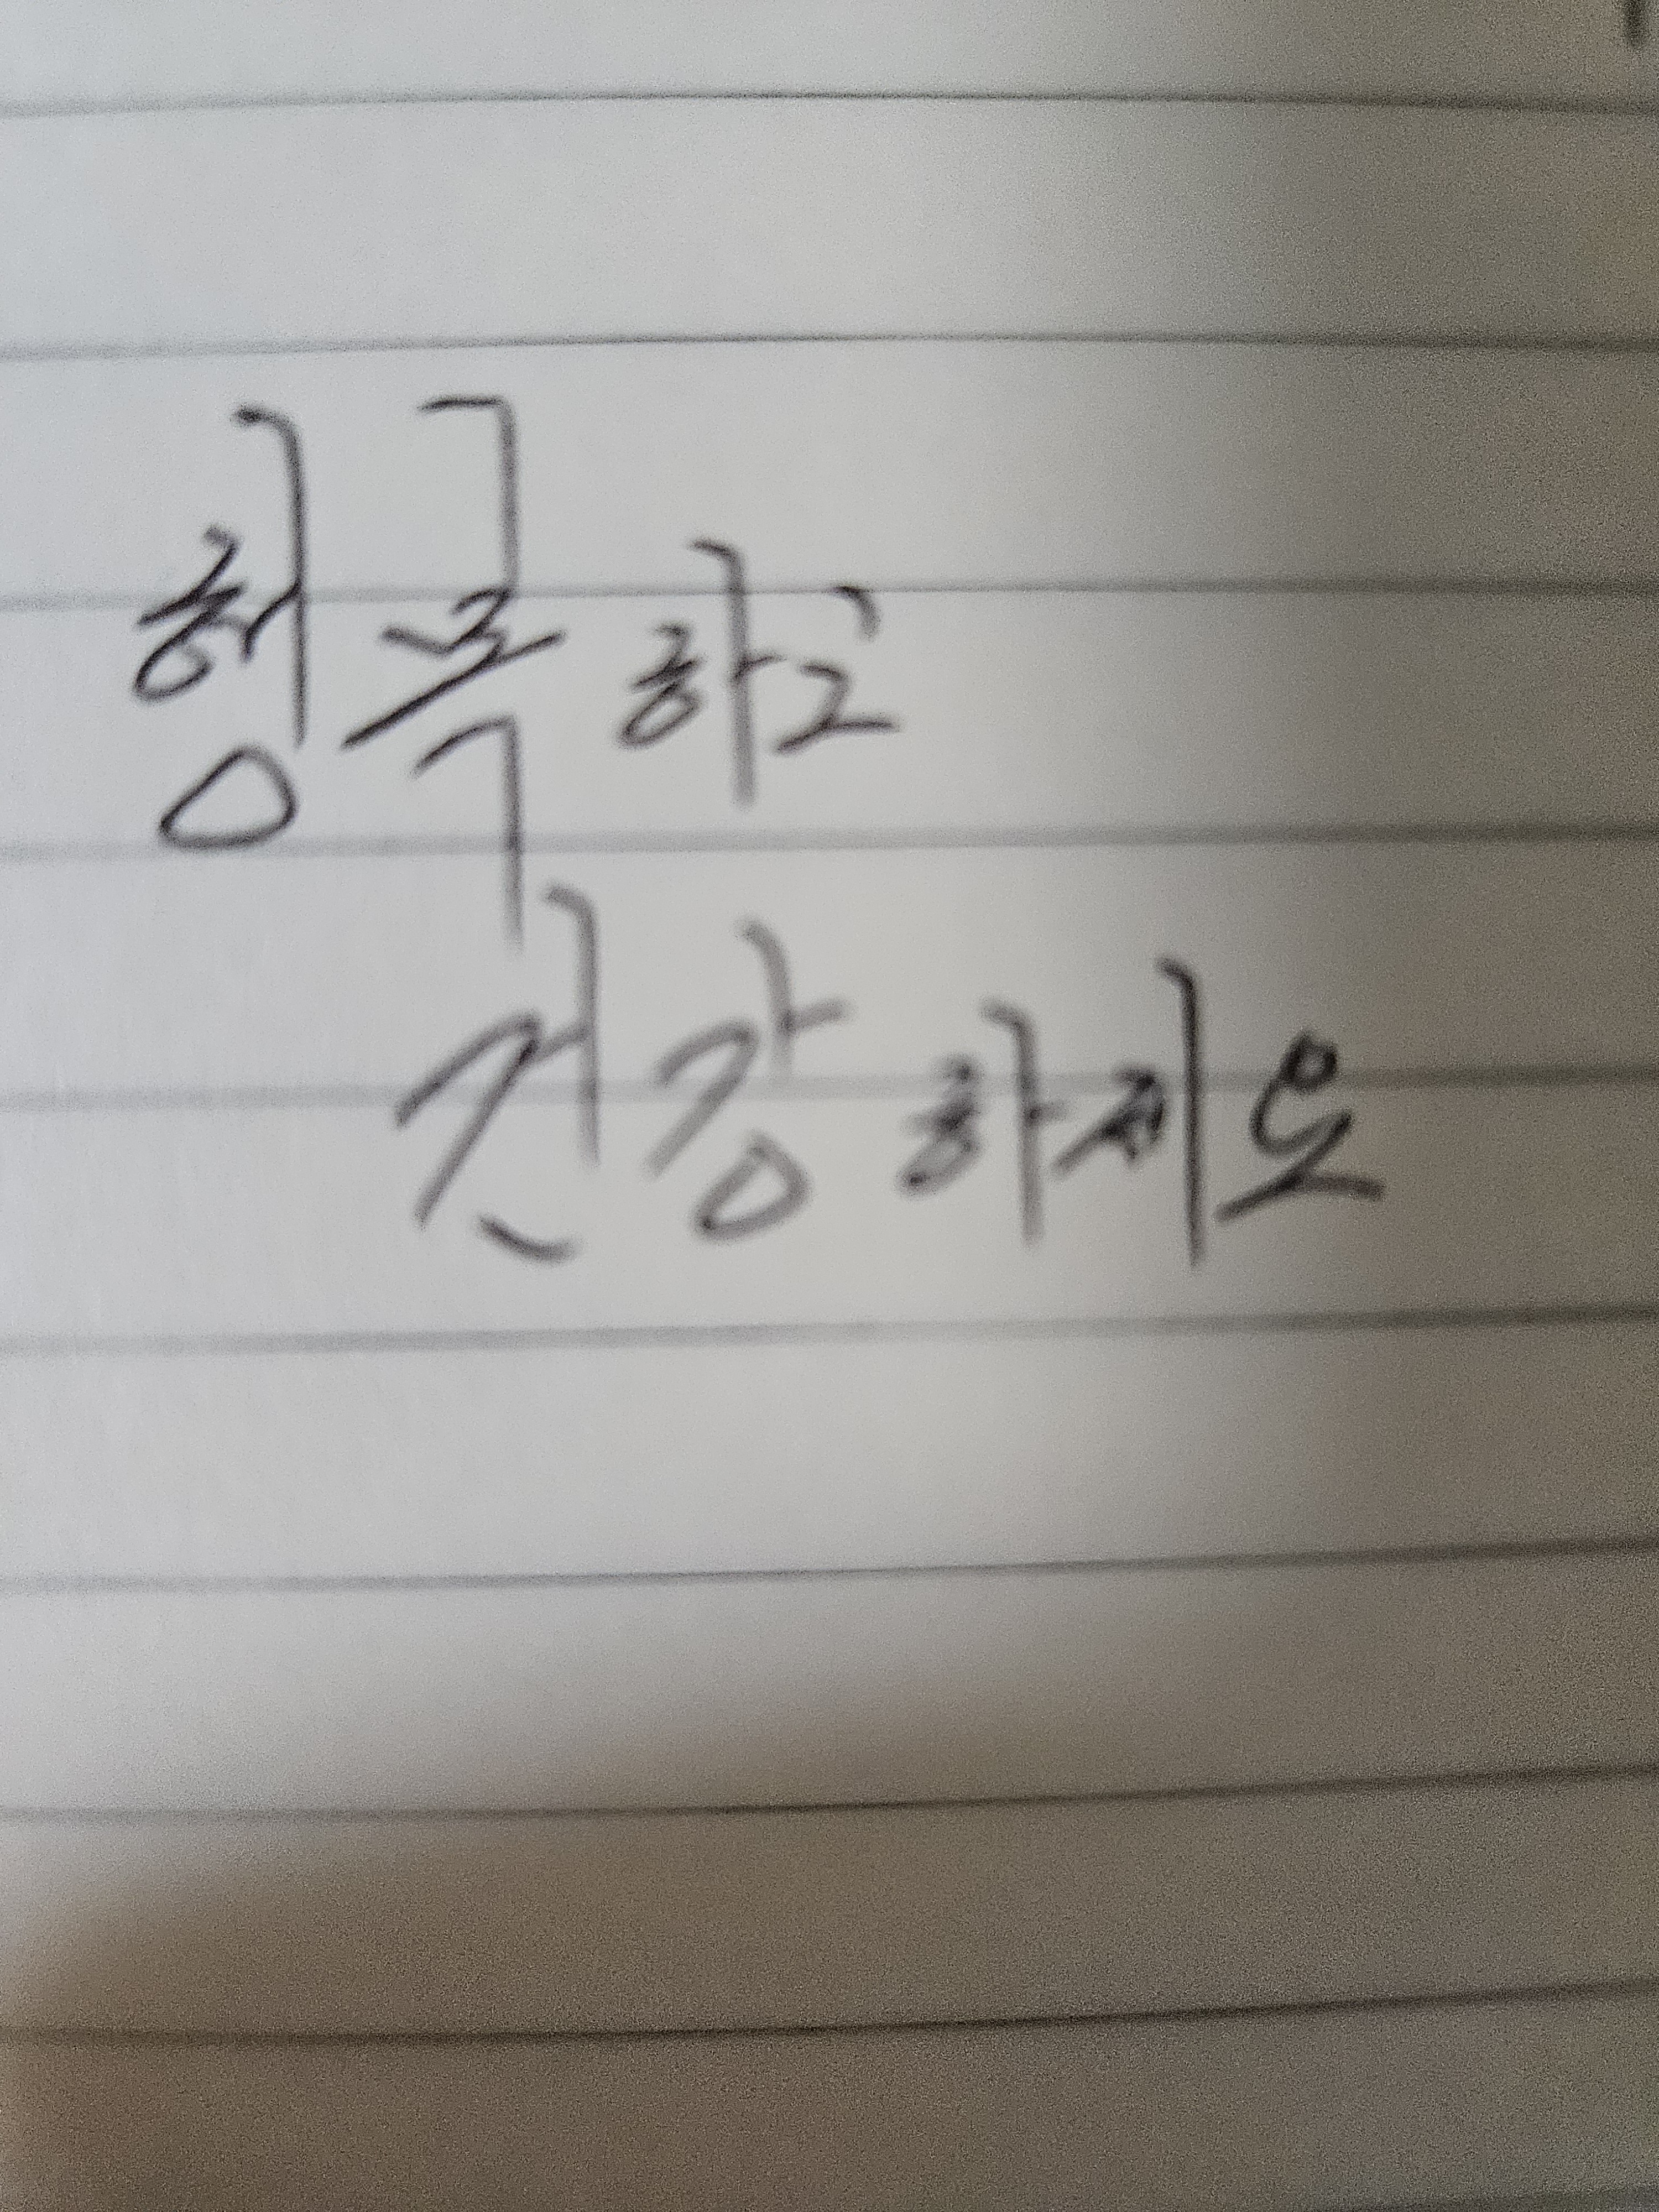 행복하고
건강하세요